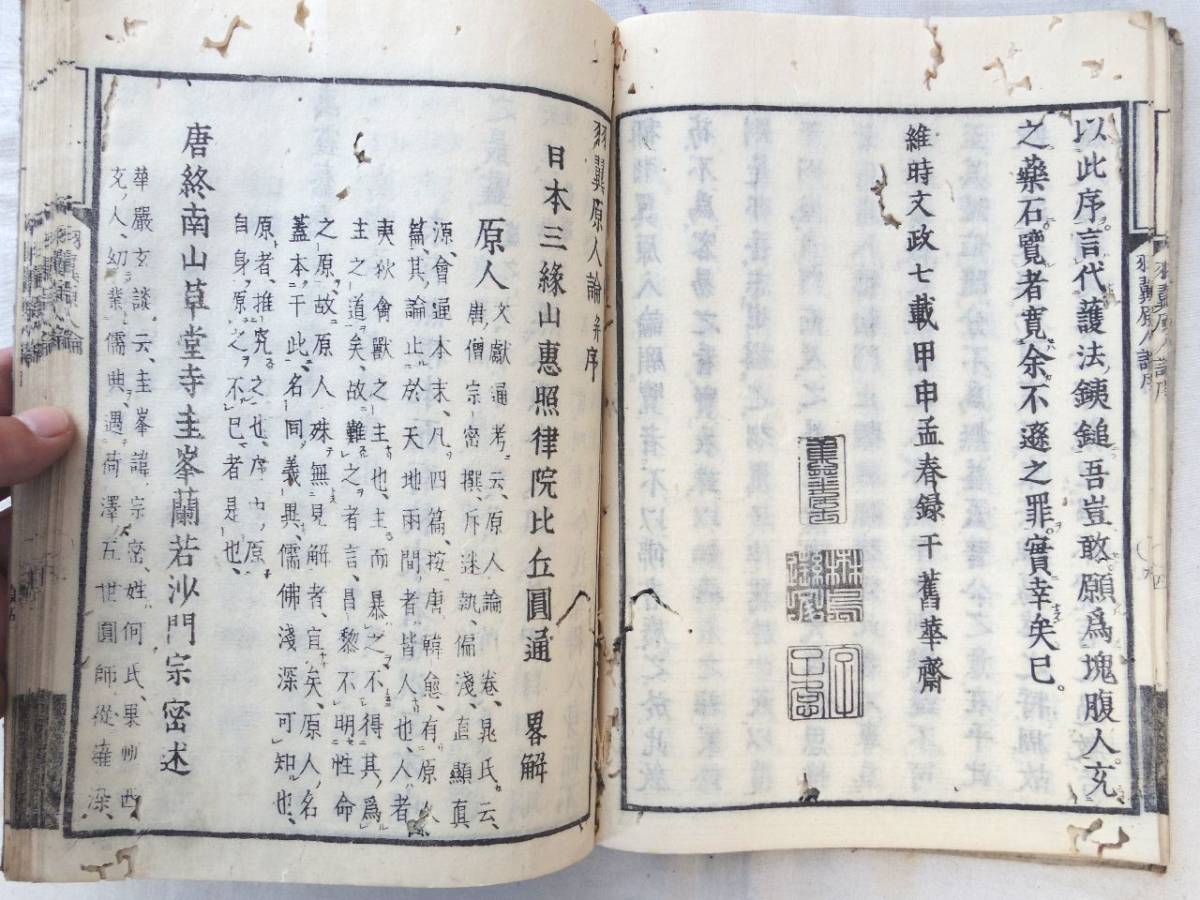 以此序言代護法銕鎚吾豈敢願爲塊腹人充
之藥石覽者寬余不遜之罪實幸矣已
維時文政七載甲申孟春録于舊華齋
羽翼原人論序
羽翼原人論并序
日本三緣山惠照律院比丘圓通 畧解
原人
文獻通考云原人論一卷晁氏云
唐僧宗密撰斥迷執偏淺直顯真
源會通本末凡四篇按唐韓愈有原人
篇其論止於天地兩間者皆人也人者
夷狄禽獸之主也主而暴之不得其爲
主之道矣故難之者言昌黎不明性命
之原故原人殊無見解者宜矣原人名
蓋本于此名同義異儒佛淺深可知也
原者推究之也序曰原
自身原之不已者是也
唐終南山草堂寺圭峯蘭若沙門宗密述
華嚴玄談云圭峯諱宗密姓何氏果州西
充人幼業儒典遇荷澤五世圓師從